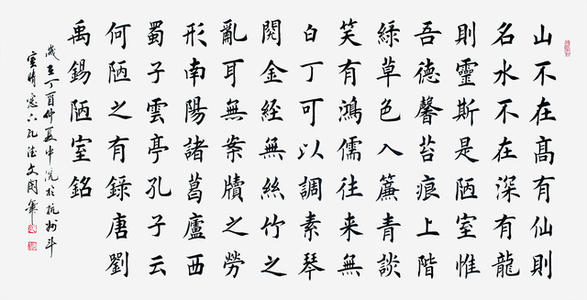 山不在高有仙則
名水不在深有龍
則靈斯是陋室惟
吾德馨苔痕上階
綠草色入簾青談
笑有鴻儒往來無
白丁可以調素琴
閱金經無絲竹之
亂耳無案牘之勞
形南陽諸葛廬西
蜀子雲亭孔子云
何陋之有錄唐劉
禹錫陋室銘
歲在丁酉仲夏中浣於杭州斗
室晴窗